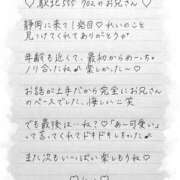 ♡駅北555 702のお兄さん♡
静岡に来て1発目♡れいのこと
見つけてくれてありがとう
年齢も近くて、最初からめーっちゃ
ノリ合ったね 楽しかった〜
お話が上手だから完全にお兄さん
のペースでした、悔しい〜笑
でも最後は…ね？♡「あー可愛い」
って言ってくれてドキドキしちゃった♡
また次もいーっぱい楽しもうね♡